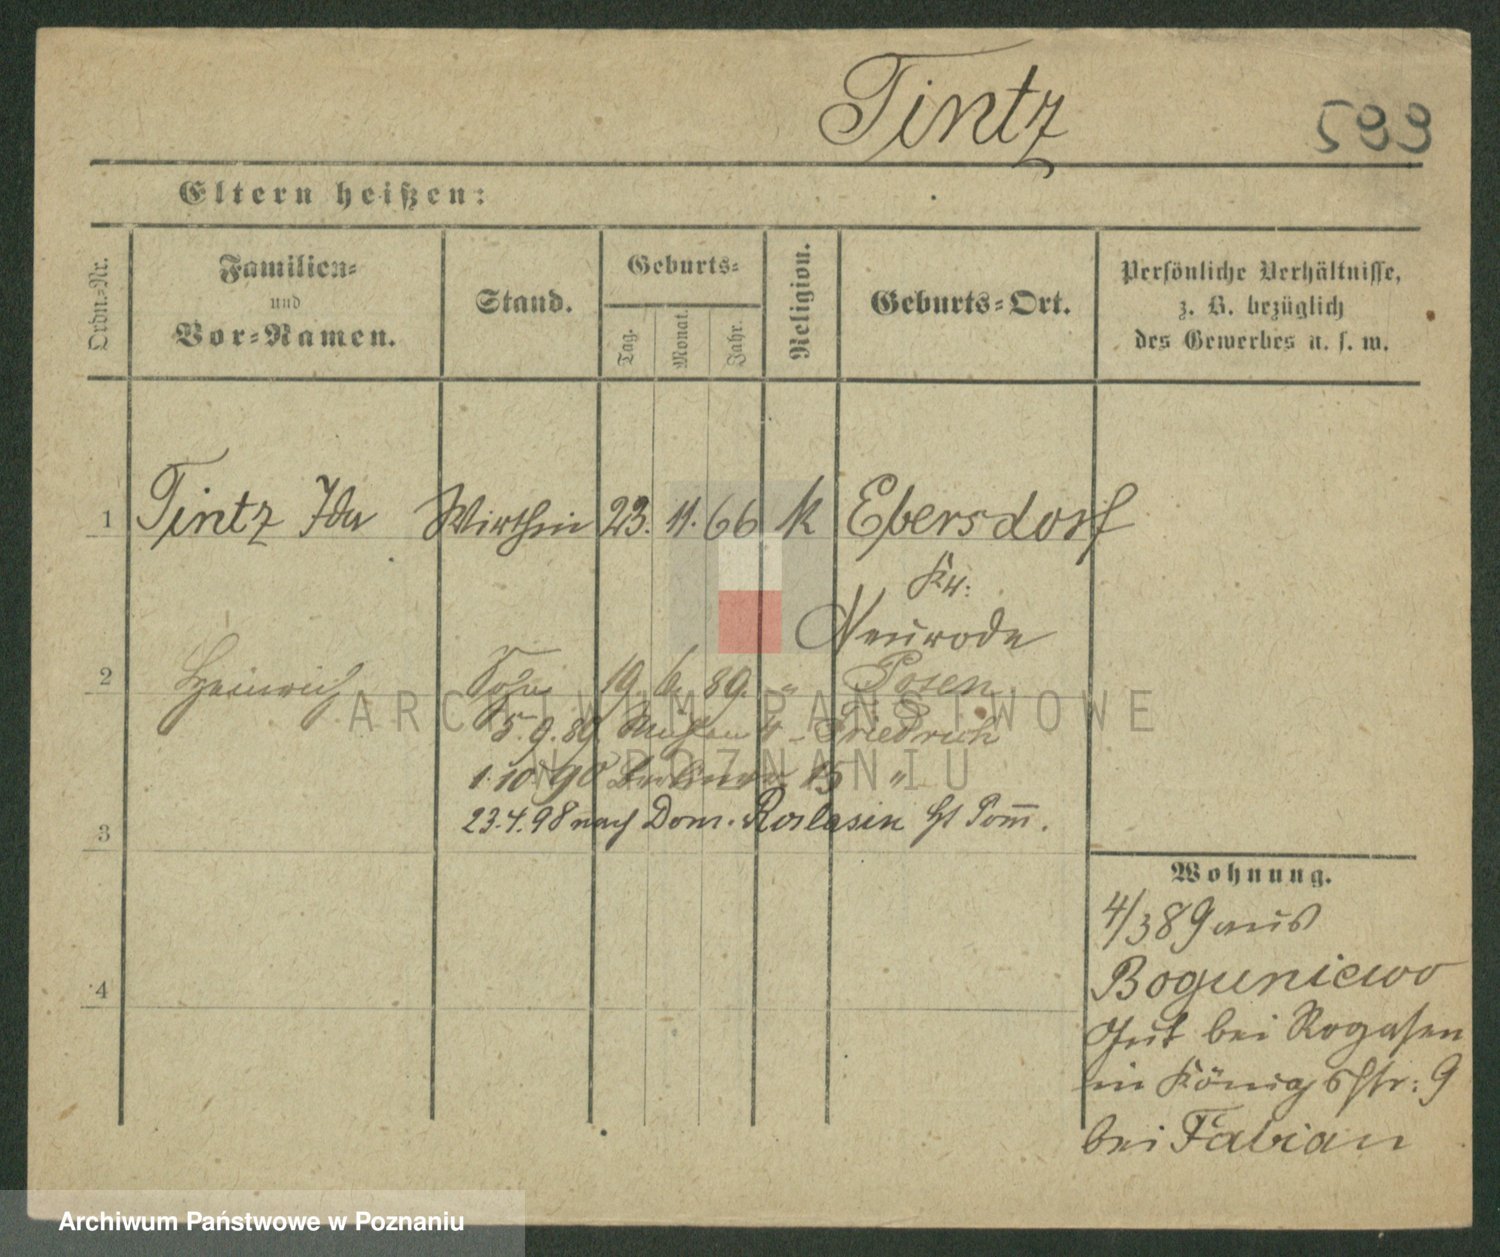 Tintz
593
Eltern heißen:
Ordn.-Nr.
Familien-
und
Vor-Namen.
Stand.
Geburts-
Tag.
Monat.
Jahr.
Religion.
Geburts-Ort.
Persönliche Verhältnisse,
z. B. bezüglich
des Gewerbes u. s. w.
1 Tintz Ida Wirthin 23. 11. 66 k Ebersdorf
Kr:
Neurode
2 Heinrich Sohn 19. 6. 89. " Posen
5.9.89 Mühlen 4 - Friedrich
1.10.90 15 "
3 23.4.98 nach Dom. Roslasin Pom̅.
4
Wohnung.
4/3 89 aus
Boguniewo
Gut bei Rogasen
in Königsstr: 9
bei Fabian
ARCHIWUM PAŃSTWOWE
W POZNANIU
Archiwum Państwowe w Poznaniu